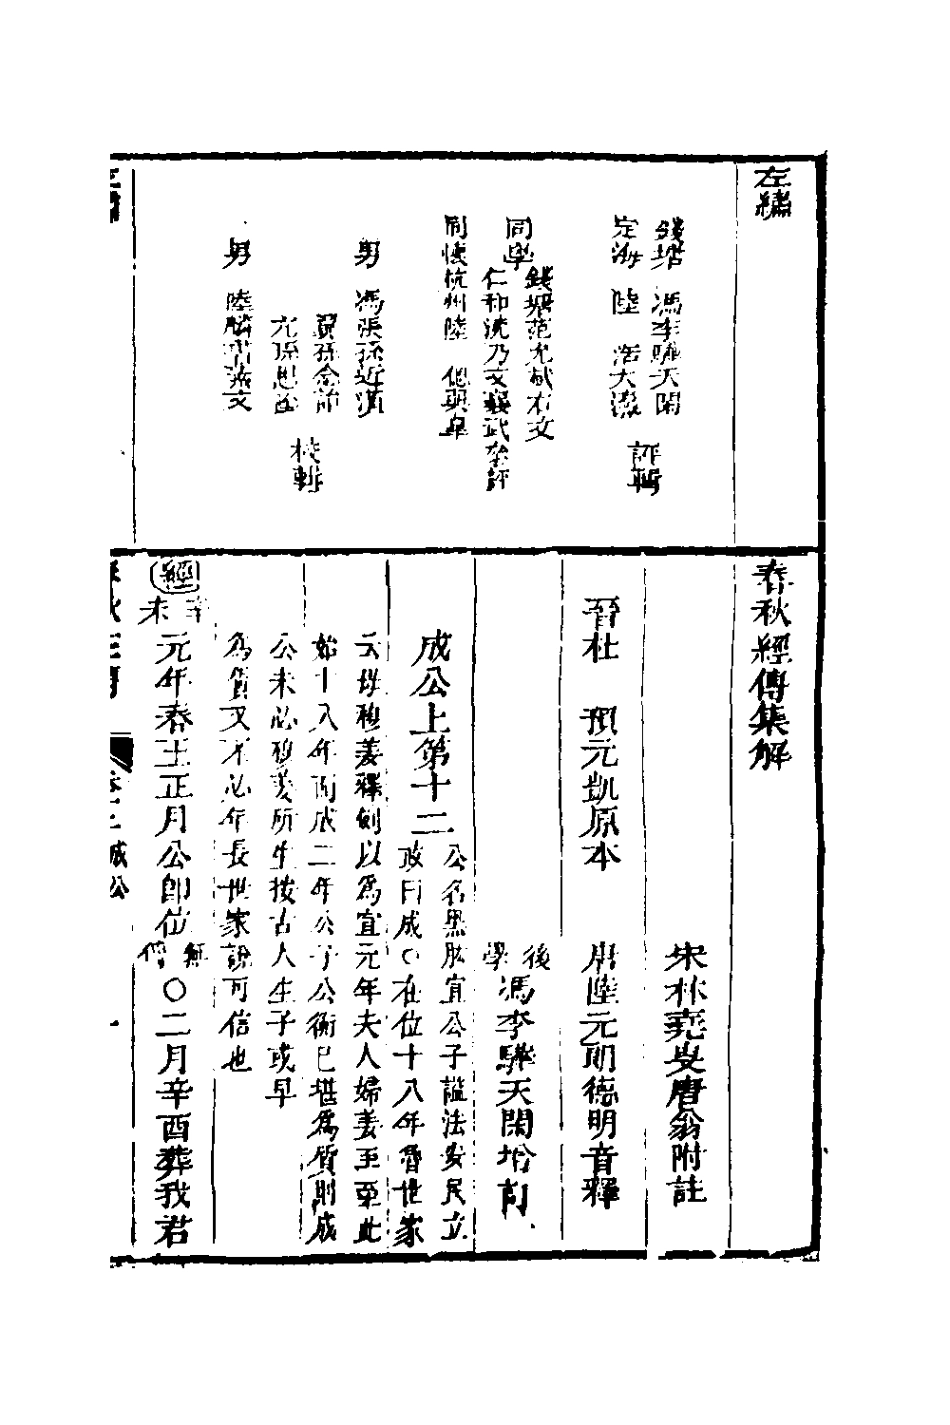 左繡
錢塘 馮李驊天閑
定海 陸 浩大瀛
評輯
同學
錢塘范允斌右文
仁和沈乃文襄武參評
同懷杭州陸 偲興皋
男 馮張孫近潢
翼孫念詒
男 陸麟書素文
校輯
春秋經傳集解
宋林堯叟唐翁附註
晉杜 預元凱原本 唐陸元朗德明音釋
後學馮李驊天閑增訂
成公上第十二
公名黑肱宣公子諡法安民立
政曰成○在位十八年魯世家
云母穆姜釋例以為宣元年夫人婦姜至至此
始十八年而成二年公子公衡已堪為質則成
公未必穆姜所生按古人生子或早
為質又不必年長世家說可信也
經
辛未
元年春王正月公即位
無傳
○二月辛酉葬我君
成公